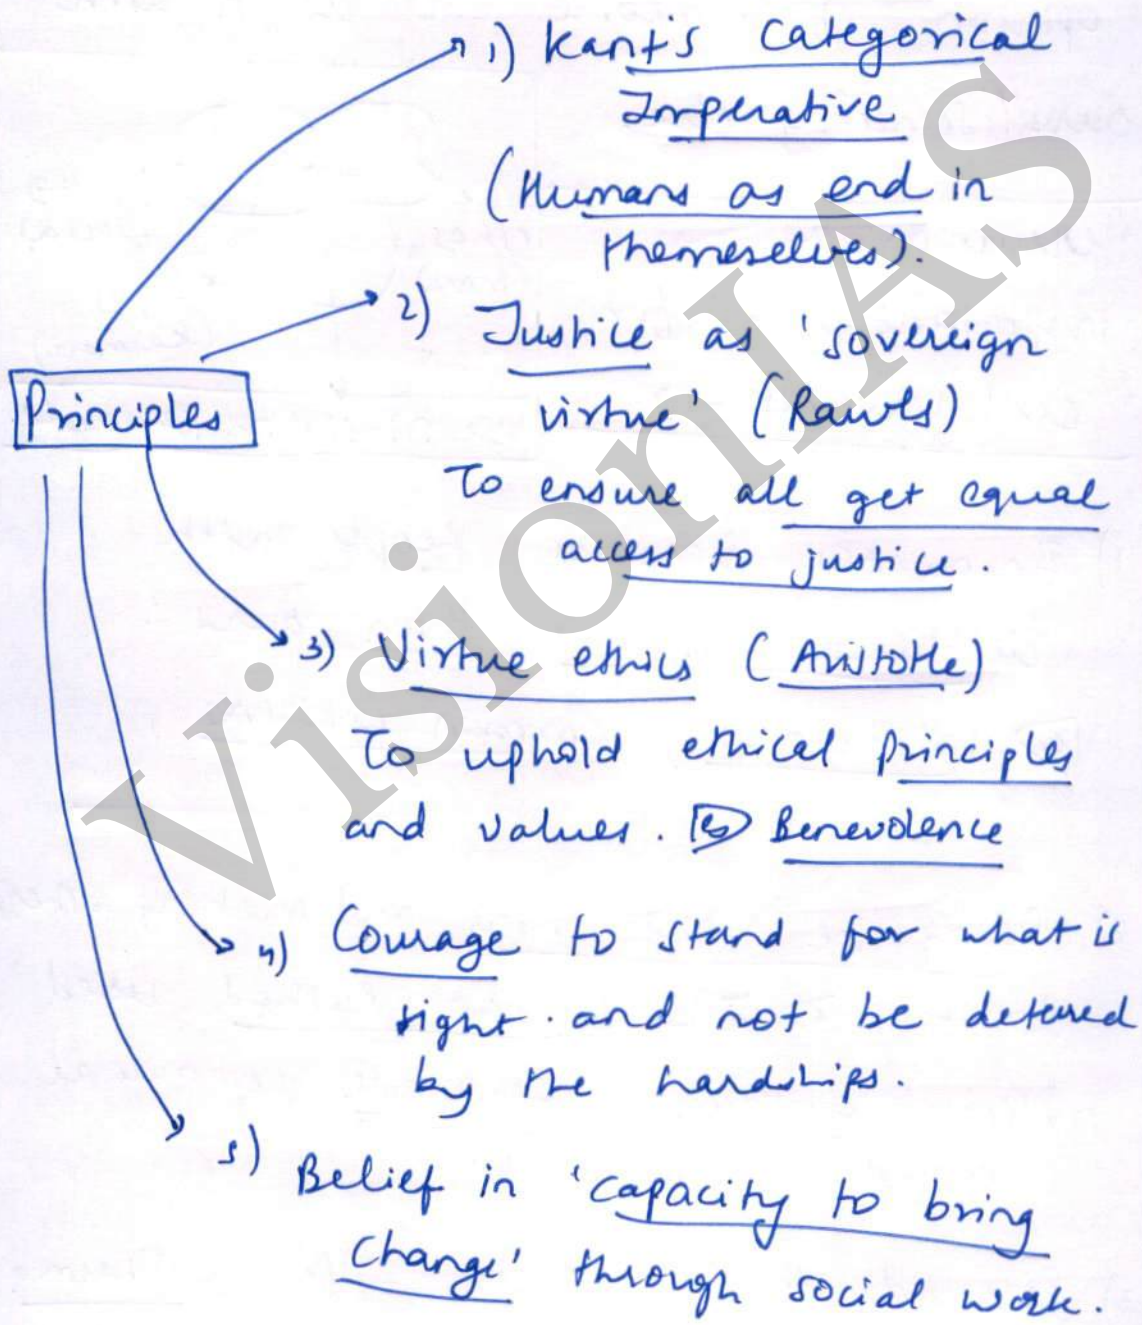 1) Kant's Categorical
Imperative
(Humans as end in
themeselves).
2) Justice as 'sovereign
virtue' (Rawls)
To ensure all get equal
access to justice.
Principles
3) Virtue ethics (Aristotle)
To uphold ethical principles
and values. Eg Benevolence
4) Courage to stand for what is
right. and not be detered
by the hardships.
5) Belief in 'capacity to bring
change' through social work.
VisionIAS